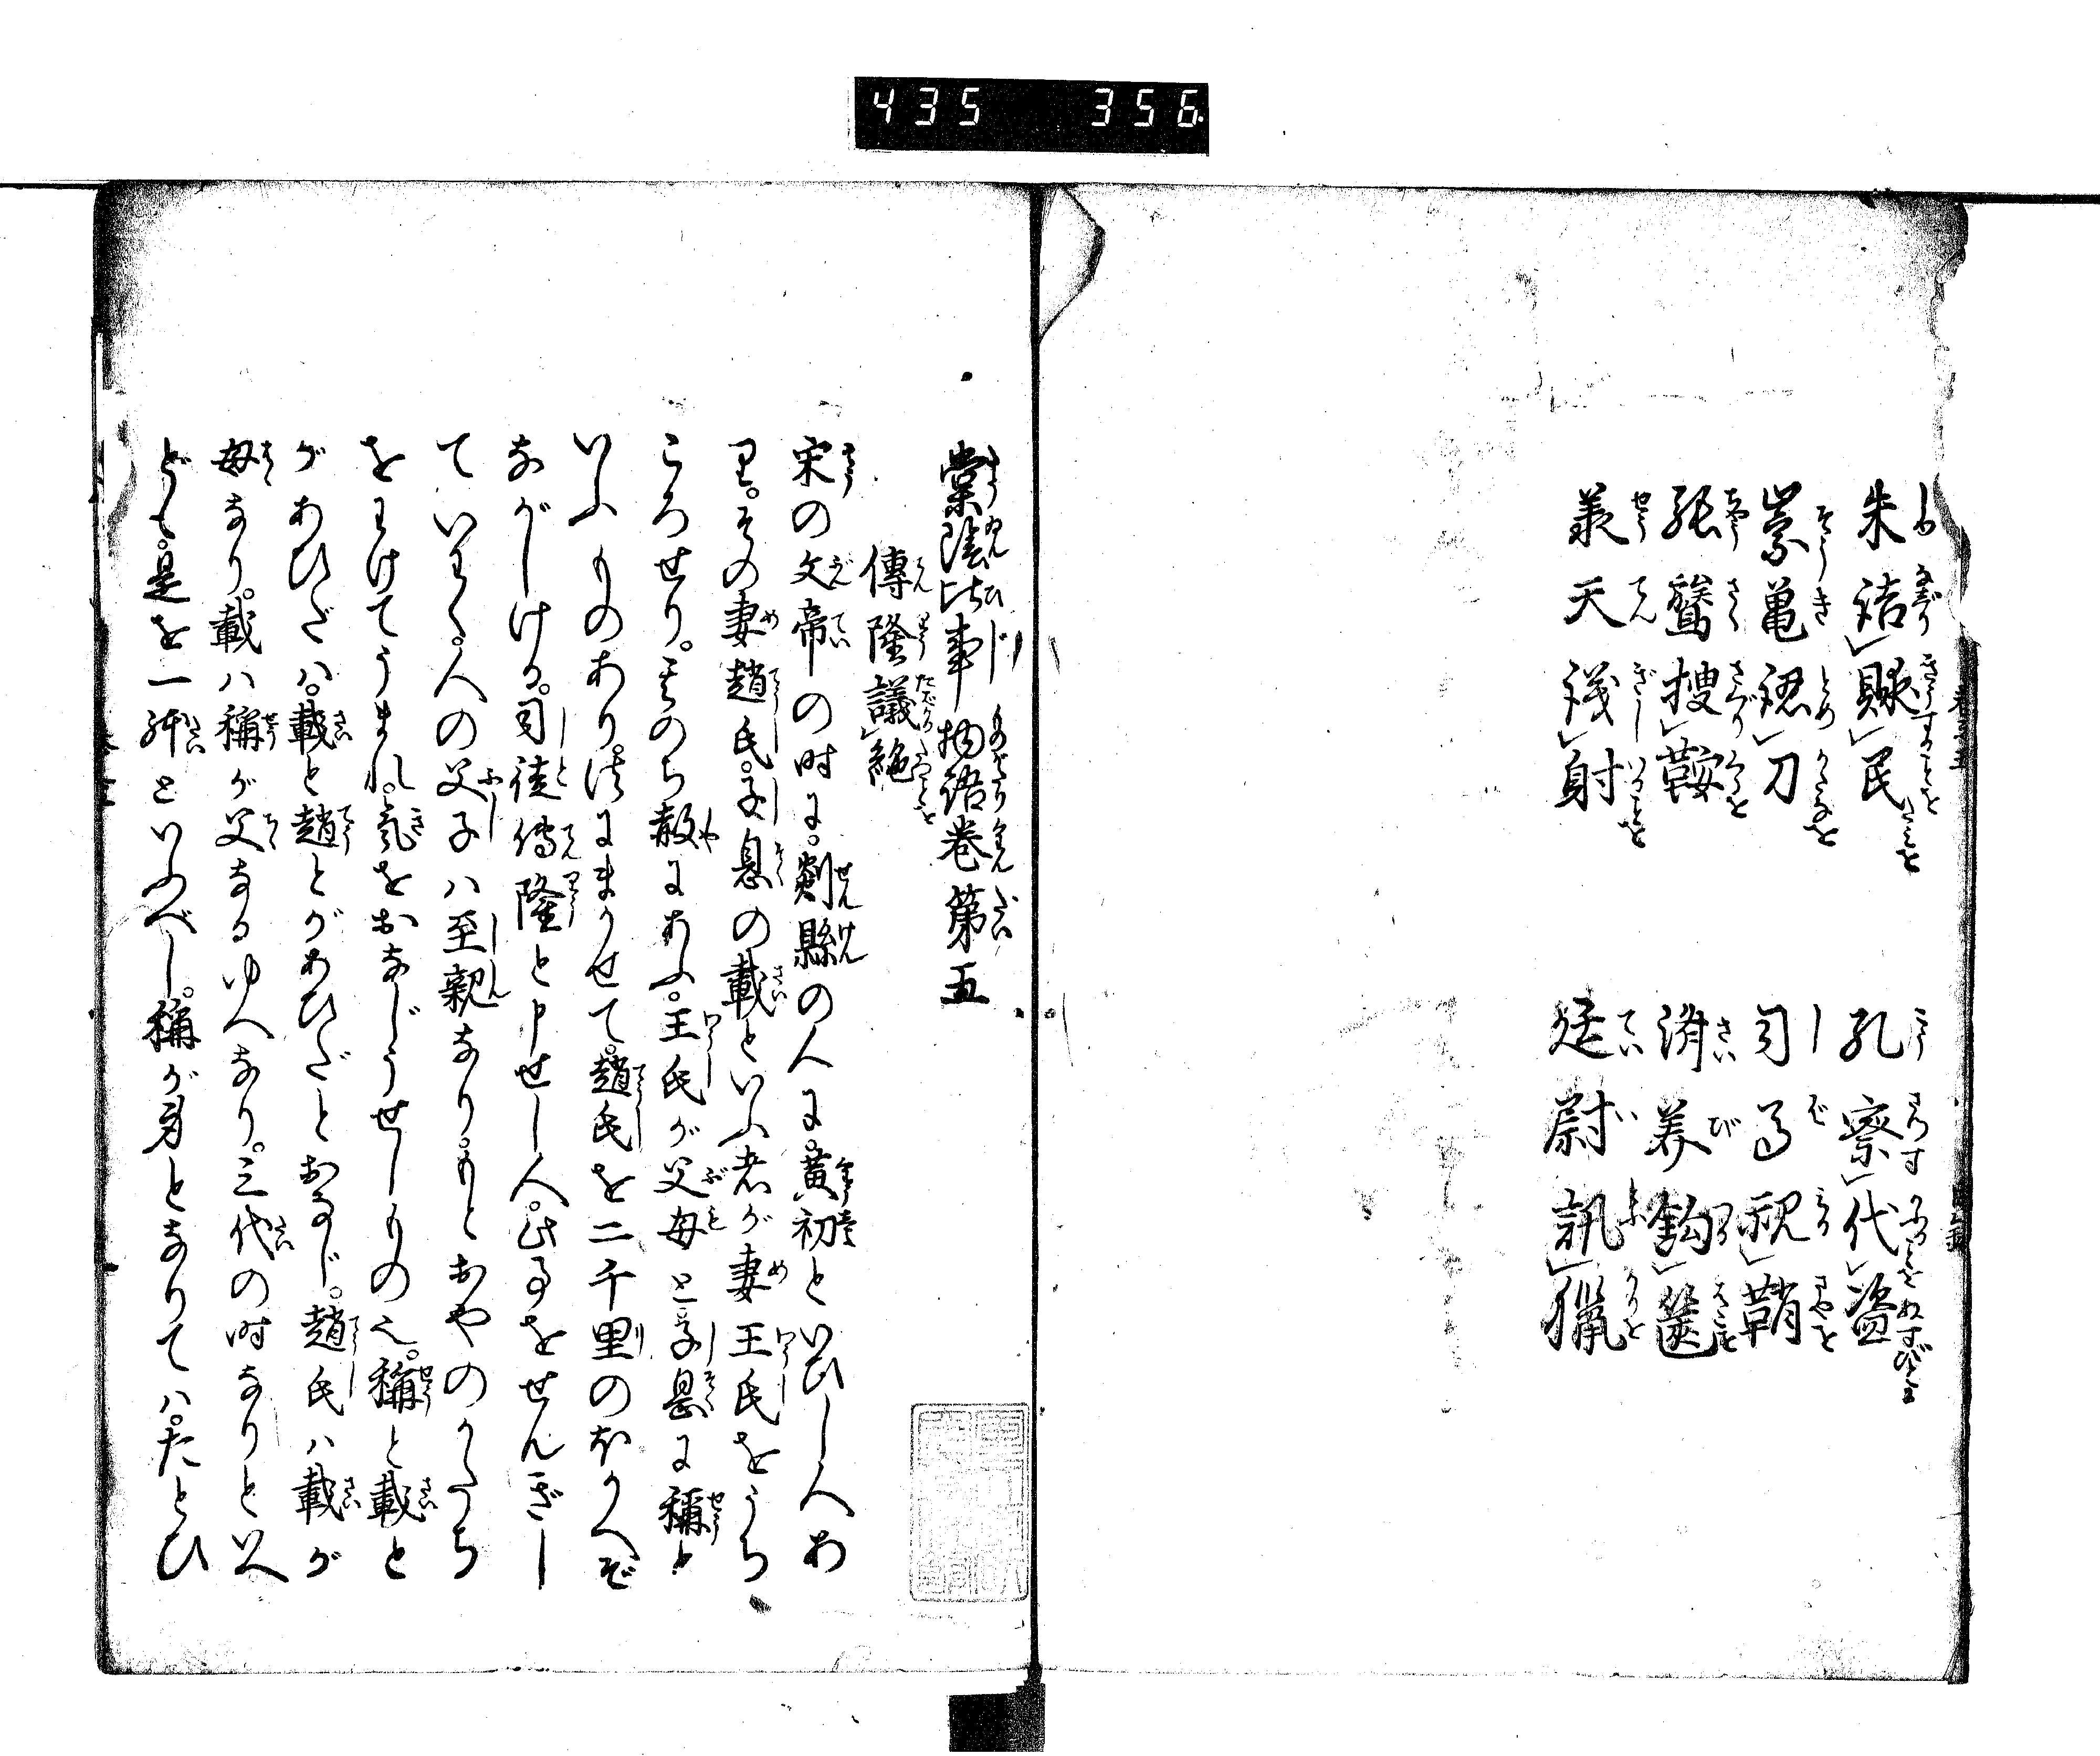 435 356
朱詰賕民 孔察代盗
崇亀認刀 司馬視鞘
張鷟搜鞍 済美鈎篋
蒋天議射 廷尉訊猟
棠陰比事物語巻第五
傳隆議絶
宋の文帝の時に。剡縣の人に。黄初といひし人あ
り。その妻趙氏。子息の載といふ者が妻王氏をうち
ころせり。そのち赦にあふ。王氏が父母と子息に稱と
いふものあり。法にまかせて。趙氏を二千里のほかへぞ
ながしける。司徒傳隆と申せし人。此事をせんぎし
ていはく。人の父子ハ至親なり。もとおやのかたち
をわけてうまれ。気をおなじうせしもの也。稱と載と
があひだハ。載と趙とがあひだとおなじ。趙氏ハ載が
母なり。載ハ稱が父なるゆへなり。三代の時なりといへ
ども。是を一躰といふべし。稱が身となりてハ。たとひ